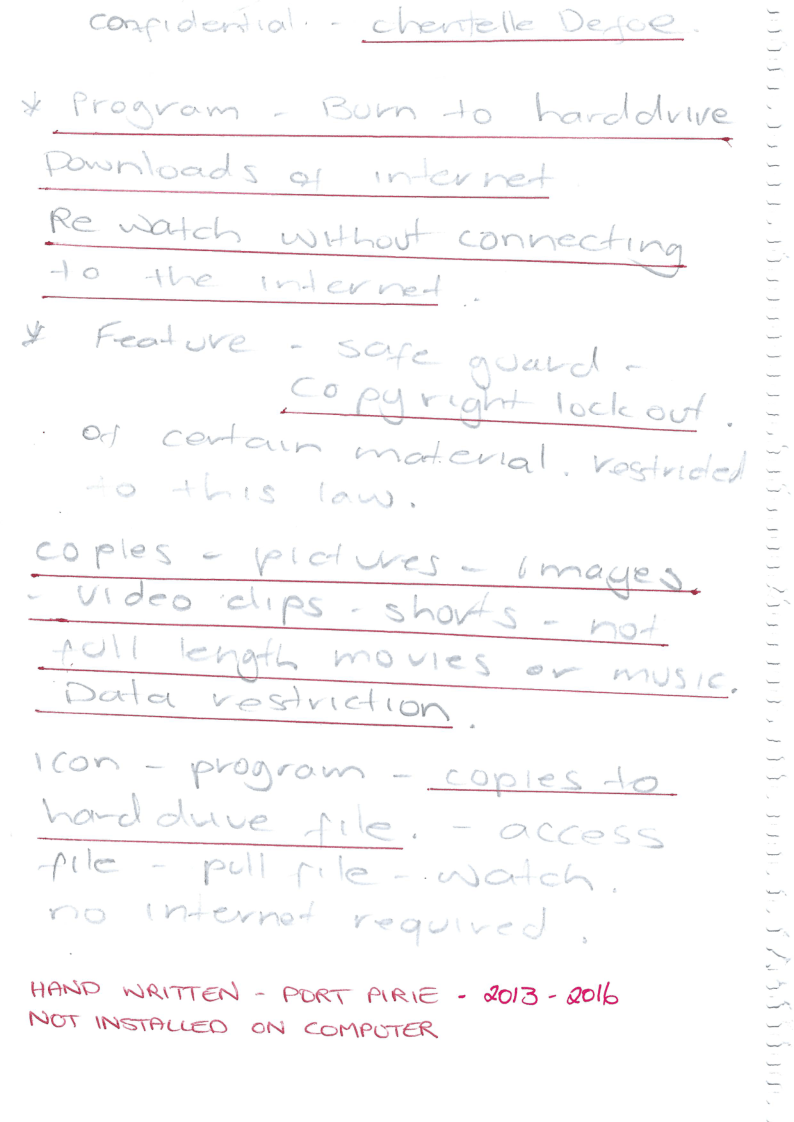 confidential. - chentelle Defoe.
* Program - Burn to harddrive
Downloads of internet
Re watch without connecting
to the internet.
* Feature - safe guard -
copyright lock out.
of certain material. restricted
to this law.
copies - pictures - images
- video clips - shorts - not
full length movies or music.
Data restriction.
icon - program - copies to
hard drive file. - access
file - pull file - watch.
no internet required.
HAND WRITTEN - PORT PIRIE - 2013 - 2016
NOT INSTALLED ON COMPUTER